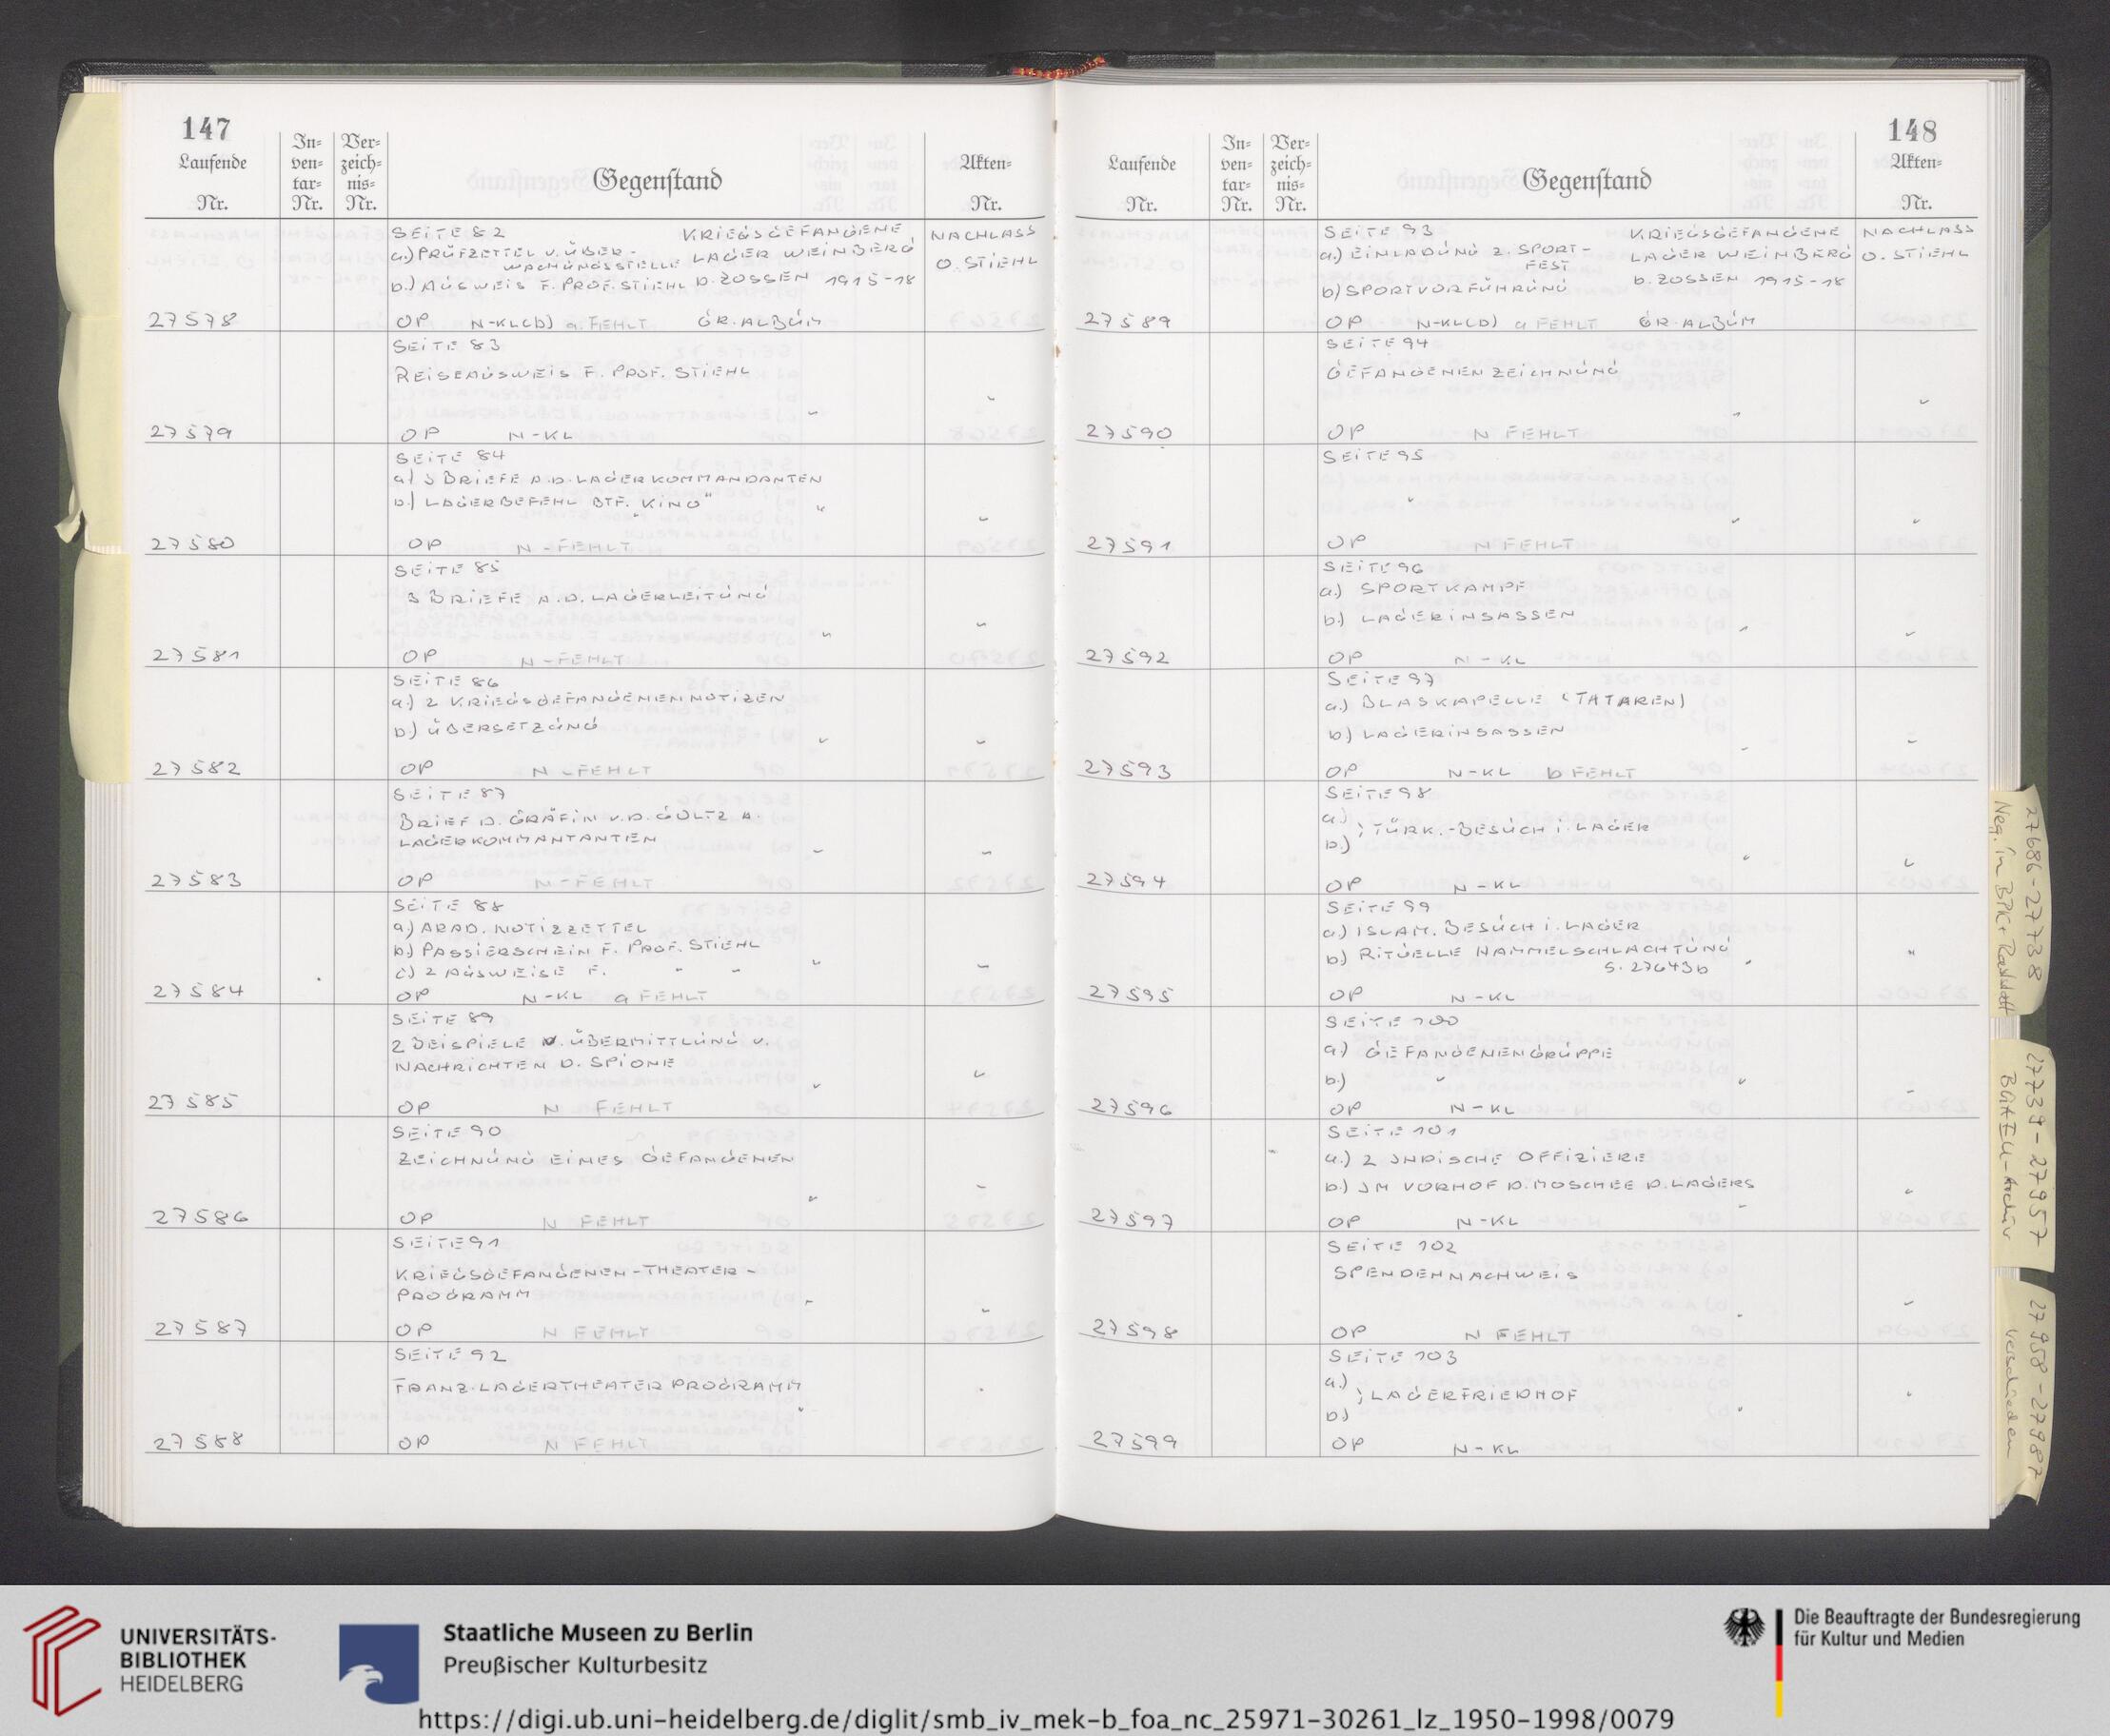 147
Laufende Nr.
In-ven-tar-Nr.
Ver-zeich-nis-Nr.
Gegenstand
Akten-Nr.
SEITE 82 KRIEGSGEFANGENE NACHLASS
a.) PRÜFZETTEL V. ÜBER- LAGER WEINBERG O. STIEHL
WACHUNGSSTELLE
b.) AUSWEIS F. PROF. STIEHL b. ZOSSEN 1915-18
27578 OP N-KL(b) a. FEHLT GR. ALBUM
SEITE 83
REISEAUSWEIS F. PROF. STIEHL
" "
27579 OP N-KL
SEITE 84
a) 3 BRIEFE A.D. LAGERKOMMANDANTEN
b.) LAGERBEFEHL BTF. "KINO" " "
27580 OP N-FEHLT
SEITE 85
3 BRIEFE A.D. LAGERLEITUNG
" "
27581 OP N-FEHLT
SEITE 86
a.) 2 KRIEGSGEFANGENENNOTIZEN
b.) ÜBERSETZUNG " "
27582 OP N-FEHLT
SEITE 87
BRIEF D. GRÄFIN V.D. GOLTZ A.
LAGERKOMMANTANTEN " "
27583 OP N-FEHLT
SEITE 88
a.) ARAB. NOTIZZETTEL
b.) PASSIERSCHEIN F. PROF. STIEHL
c.) 2 AUSWEISE F. " " " "
27584 OP N-KL a FEHLT
SEITE 89
2 BEISPIELE V. ÜBERMITTLUNG V.
NACHRICHTEN D. SPIONE " "
27585 OP N FEHLT
SEITE 90
ZEICHNUNG EINES GEFANGENEN
" "
27586 OP N FEHLT
SEITE 91
KRIEGSGEFANGENEN-THEATER-
PROGRAMM " "
27587 OP N FEHLT
SEITE 92
FRANZ. LAGERTHEATERPROGRAMM
" "
27588 OP N FEHLT
148
Laufende Nr.
In-ven-tar-Nr.
Ver-zeich-nis-Nr.
Gegenstand
Akten-Nr.
SEITE 93 KRIEGSGEFANGENE NACHLASS
a.) EINLADUNG Z. SPORT- LAGER WEINBERG O. STIEHL
FEST
b) SPORTVORFÜHRUNG b. ZOSSEN 1915-18
27589 OP N-KL(b) a FEHLT GR. ALBUM
SEITE 94
GEFANGENENZEICHNUNG
" "
27590 OP N FEHLT
SEITE 95
" " "
27591 OP N FEHLT
SEITE 96
a.) SPORTKAMPF
b.) LAGERINSASSEN " "
27592 OP N-KL
SEITE 97
a.) BLASKAPELLE (TATAREN)
b.) LAGERINSASSEN " "
27593 OP N-KL b FEHLT
SEITE 98
a.)
} TÜRK.-BESUCH i. LAGER
b.) " "
27594 OP N-KL
SEITE 99
a.) ISLAM. BESUCH i. LAGER
b.) RITUELLE HAMMELSCHLACHTUNG " "
S. 27643b
27595 OP N-KL
SEITE 100
a.) GEFANGENENGRUPPE
b.) " " "
27596 OP N-KL
SEITE 101
a.) 2 INDISCHE OFFIZIERE
b.) IM VORHOF D. MOSCHEE D. LAGERS
" "
27597 OP N-KL
SEITE 102
SPENDENNACHWEIS
" "
27598 OP N FEHLT
SEITE 103
a.)
} LAGERFRIEDHOF
b) " "
27599 OP N-KL
27686-27738
Neg. in BPK + Rasdatt
27739-27957
BGAEU-Archiv
27958-27987
verschieden
UNIVERSITÄTS-
BIBLIOTHEK
HEIDELBERG
Staatliche Museen zu Berlin
Preußischer Kulturbesitz
Die Beauftragte der Bundesregierung
für Kultur und Medien
https://digi.ub.uni-heidelberg.de/diglit/smb_iv_mek-b_foa_nc_25971-30261_lz_1950-1998/0079